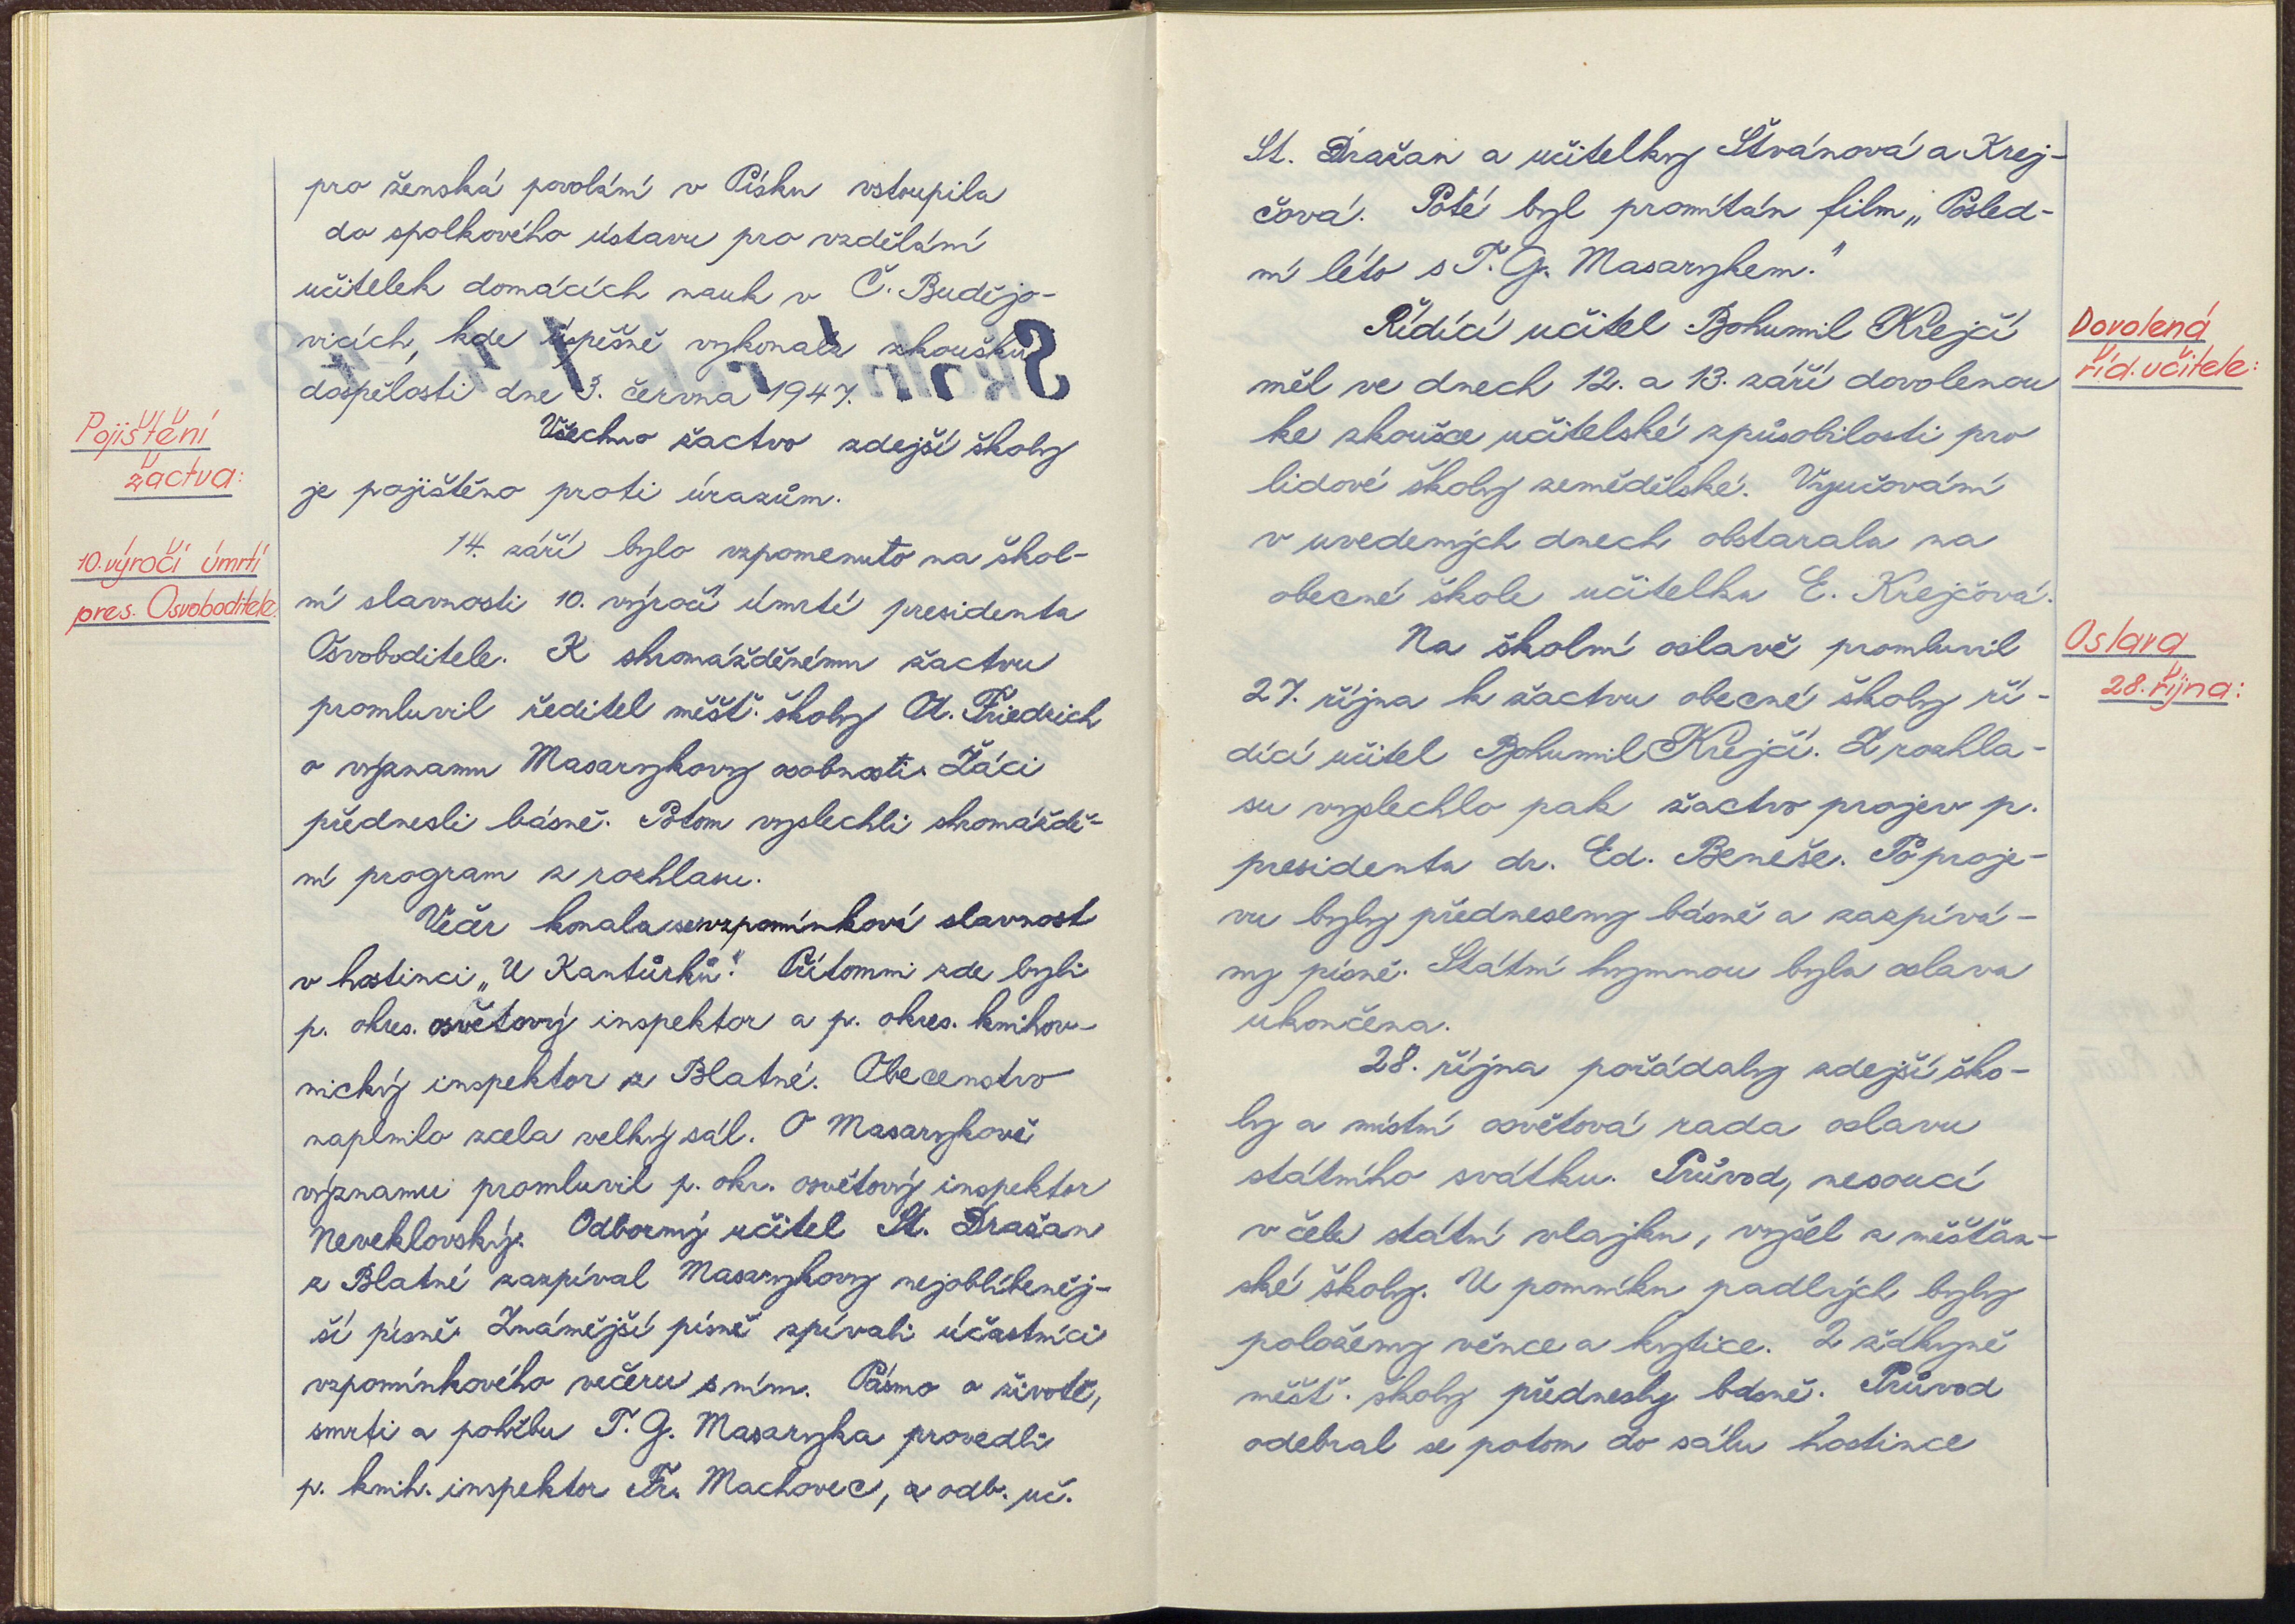 pro ženská povolání v Písku vstoupila
do spolkového ústavu pro vzdělání
učitelek domácích nauk v Č. Budějo-
vicích, kde úspěšně vykonala zkoušku
dospělosti dne 3. června 1947.
Pojištění
žactva:
Všechno žactvo zdejší školy
je pojištěno proti úrazům.
10. výročí úmrtí
pres. Osvoboditele.
14. září bylo vzpomenuto na škol-
ní slavnosti 10. výročí úmrtí presidenta
Osvoboditele. K shromážděnému žactvu
promluvil ředitel měšť. školy Ot. Friedrich
o významu Masarykovy osobnosti. Žáci
přednesli básně. Potom vyslechli shromáždě-
ní program z rozhlasu.
Večer konala se vzpomínková slavnost
v hostinci „U Kantůrků". Přítomni zde byli
p. okres. osvětový inspektor a p. okres. knihov-
nický inspektor z Blatné. Obecenstvo
naplnilo zcela velký sál. O Masarykově
významu promluvil p. okr. osvětový inspektor
Neveklovský. Odborný učitel St. Dražan
z Blatné zazpíval Masarykovy nejoblíbeněj-
ší písně. Známější písně zpívali účastníci
vzpomínkového večeru s ním. Pásmo o životě,
smrti a pohřbu T. G. Masaryka provedli
p. knih. inspektor Fr. Machovec, a odb. uč.
St. Dražan a učitelky Štvánová a Krej-
čová. Poté byl promítán film „Posled-
ní léto s T. G. Masarykem."
Dovolená
říd. učitele:
Řídící učitel Bohumil Krejčí
měl ve dnech 12. a 13. září dovolenou
ke zkoušce učitelské způsobilosti pro
lidové školy zemědělské. Vyučování
v uvedených dnech obstarala na
obecné škole učitelka E. Krejčová.
Oslava
28. října:
Na školní oslavě promluvil
27. října k žactvu obecné školy ří-
dící učitel Bohumil Krejčí. Z rozhla-
su vyslechlo pak žactvo projev p.
presidenta dr. Ed. Beneše. Po proje-
vu byly předneseny básně a zazpívá-
ny písně. Státní hymnou byla oslava
ukončena.
28. října pořádaly zdejší ško-
ly a místní osvětová rada oslavu
státního svátku. Průvod, nesoucí
v čele státní vlajku, vyšel z měšťan-
ské školy. U pomníku padlých byly
položeny věnce a kytice. 2 žákyně
měšť. školy přednesly básně. Průvod
odebral se potom do sálu hostince